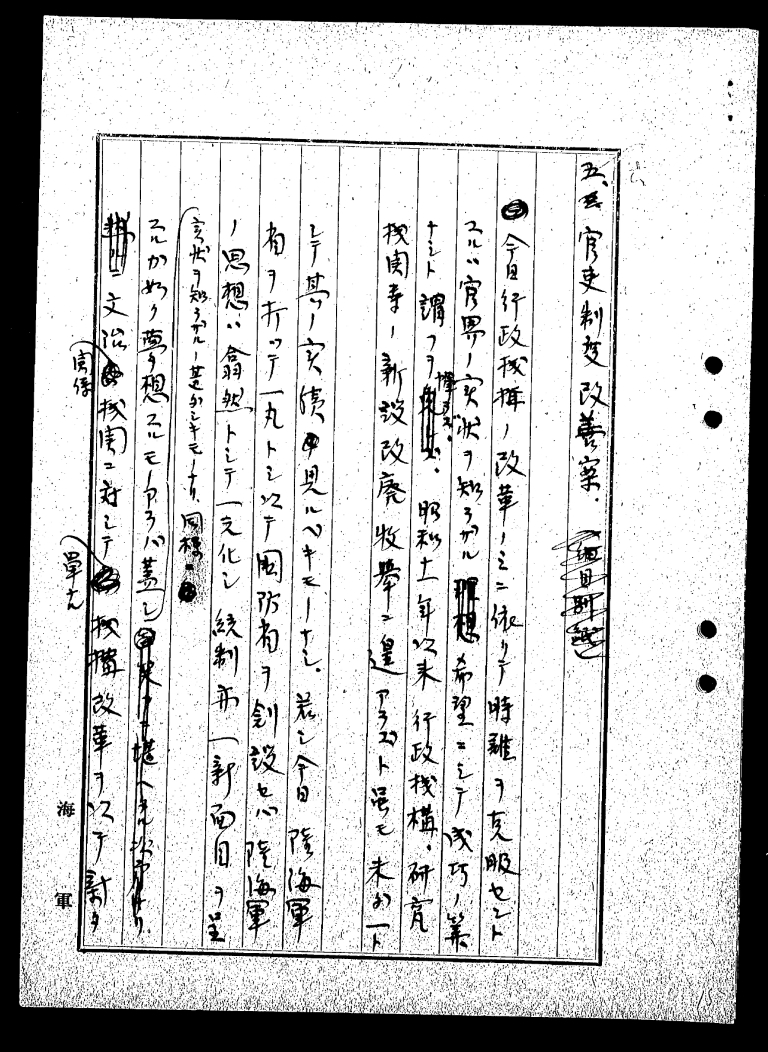 五、官吏制度改善案、
今日行政機構ノ改革ノミニ依リテ時難ヲ克服セント
スルハ官界ノ実状ヲ知ラザル希望ニシテ成功ノ算
ナシト謂フヲ憚ラズ。昭和十一年以来行政機構ノ研究
機関等ノ新設改廃枚挙ニ遑アラズト雖モ未ダ一ト
シテ其ノ実績ノ見ルベキモノナシ、若シ今日陸海軍
省ヲ打ッテ一丸トシ以テ国防省ヲ創設セバ陸海軍
ノ思想ハ翕然トシテ一元化シ統制亦一新面目ヲ呈
スルカ如ク夢想スルモノアラバ蓋シ
実状ヲ知ラザルノ甚ダシキモノナリ、同様ニ
文治関係機関ニ対シテ単ナル機構改革ヲ以テ
海軍
15